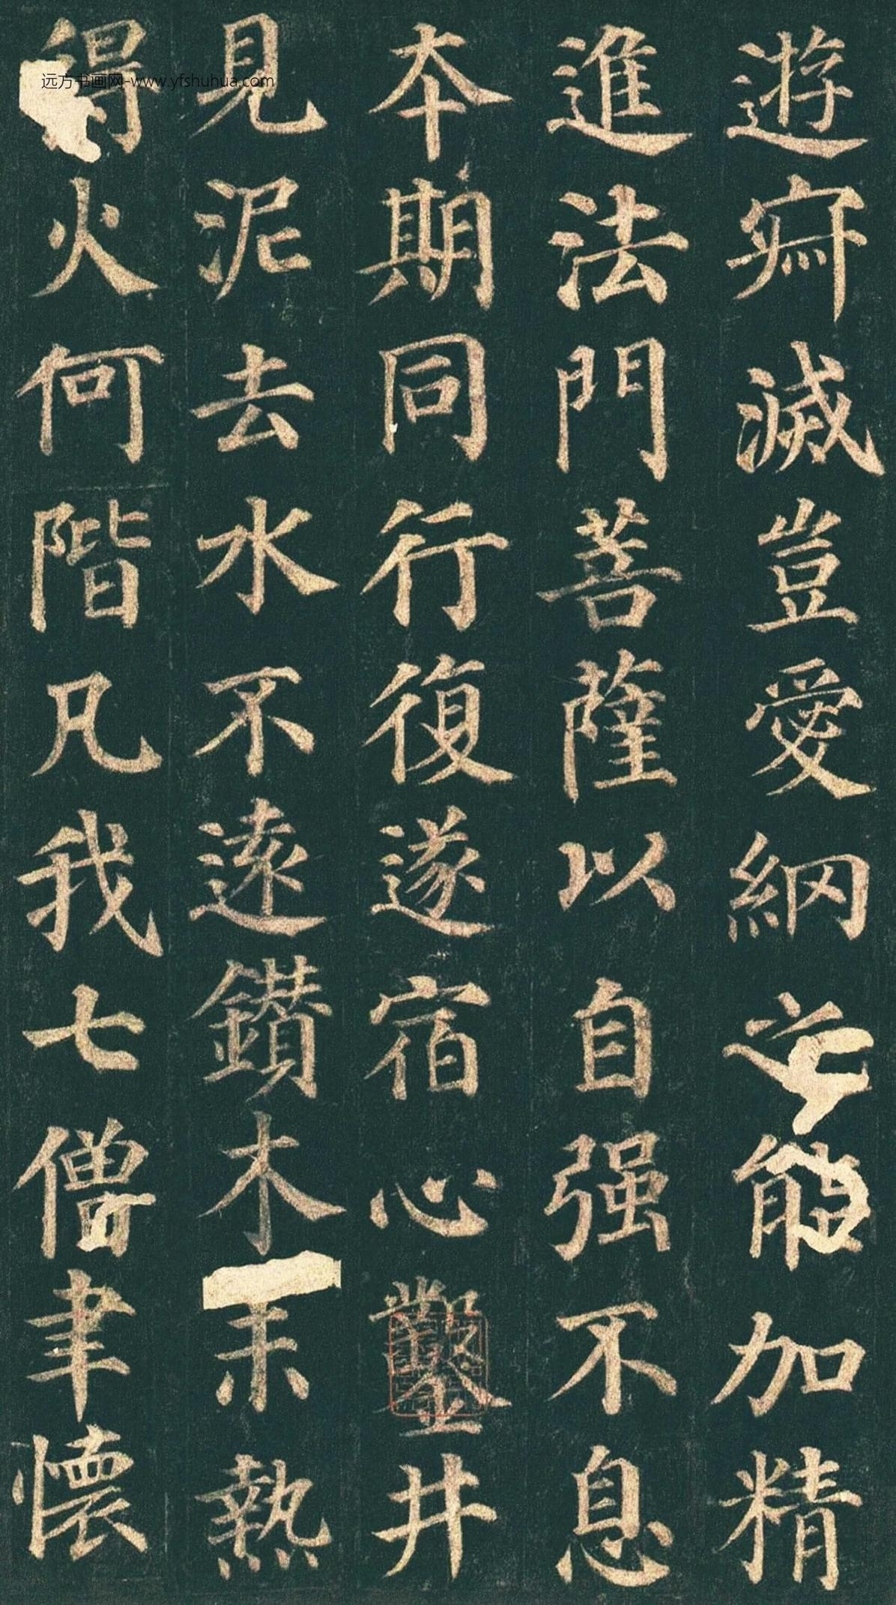 遊寂滅豈愛網之能加精
進法門菩薩以自强不息
本期同行復遂宿心鑿井
見泥去水不遠鑽木未熱
得火何階凡我七僧聿懷
远方书画网-www.yfshuhua.com